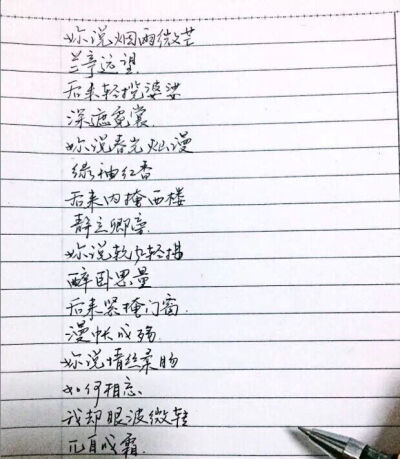 妳说烟雨微芒
兰亭远望
后来轻揽婆娑
深遮霓裳
妳说春光烂漫
绿袖红香
后来内掩西楼
静立卿旁
妳说软风轻扬
醉卧思量
后来紧掩门窗
漫帐成殇
妳说情丝柔肠
如何相忘
我却眼波微转
兀自成霜